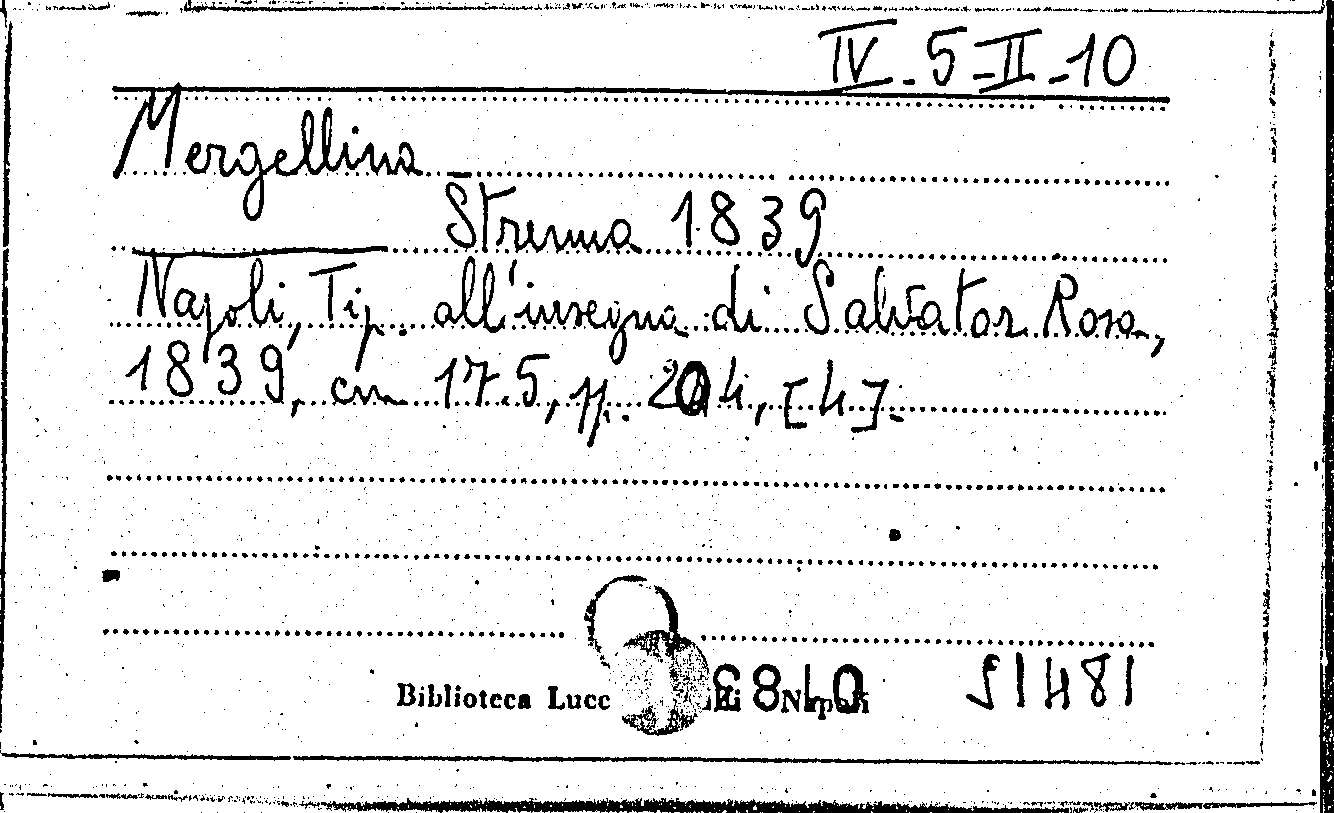 IV-5-II-10
Mergellina
Strenna 1839
Napoli, Tip. all'insegna di Salvator Rosa,
1839, cm 17.5, pp. 204, [4].
Biblioteca Lucc
S1481